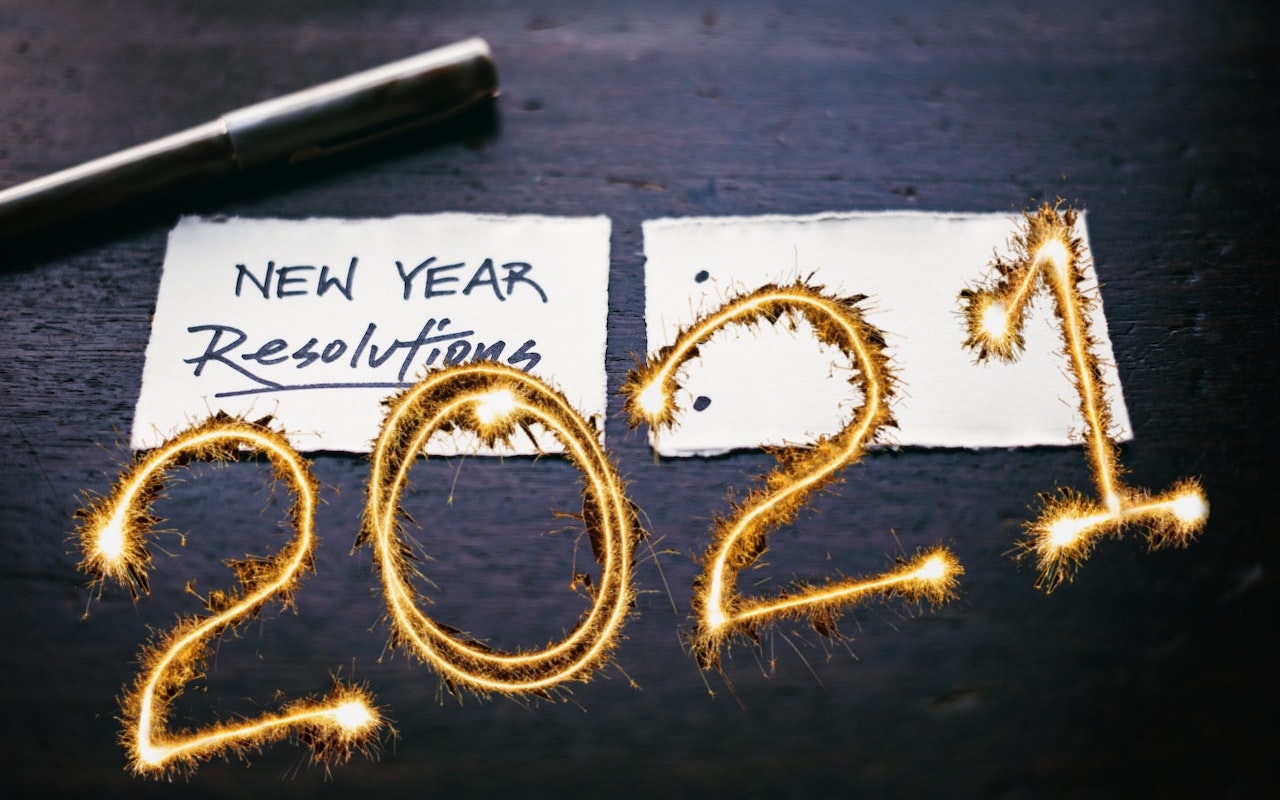 NEW YEAR
Resolutions
2021